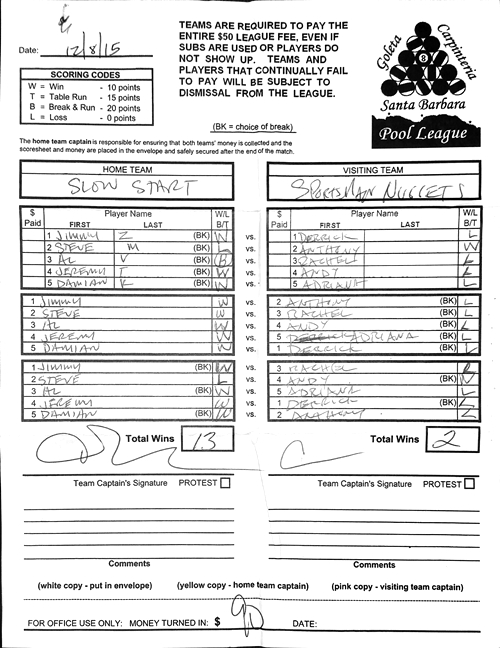 Date: 12/8/15
TEAMS ARE REQUIRED TO PAY THE
ENTIRE $50 LEAGUE FEE, EVEN IF
SUBS ARE USED OR PLAYERS DO
NOT SHOW UP. TEAMS AND
PLAYERS THAT CONTINUALLY FAIL
TO PAY WILL BE SUBJECT TO
DISMISSAL FROM THE LEAGUE.
Goleta
Carpinteria
8
Santa Barbara
Pool League
SCORING CODES
W = Win - 10 points
T = Table Run - 15 points
B = Break & Run - 20 points
L = Loss - 0 points
(BK = choice of break)
The home team captain is responsible for ensuring that both teams' money is collected and the
scoresheet and money are placed in the envelope and safely secured after the end of the match.
HOME TEAM VISITING TEAM
SLOW START SPORTSMAN NUGGETS
$ Paid Player Name FIRST LAST W/L B/T $ Paid Player Name FIRST LAST W/L B/T
1 JIMMY Z (BK) W vs. 1 DERRICK L
2 STEVE M (BK) L vs. 2 ANTHONY W
3 AL V (BK) B vs. 3 RACHEL L
4 JEREMY T (BK) W vs. 4 ANDY L
5 DAMIAN K (BK) W vs. 5 ADRIANA L
1 JIMMY W vs. 2 ANTHONY (BK) L
2 STEVE W vs. 3 RACHEL (BK) L
3 AL W vs. 4 ANDY (BK) L
4 JEREMY W vs. 5 ADRIANA (BK) L
5 DAMIAN W vs. 1 DERRICK (BK) L
1 JIMMY (BK) W vs. 3 RACHEL
2 STEVE L vs. 4 ANDY (BK) W
3 AL (BK) W vs. 5 ADRIANA L
4 JEREMY W vs. 1 DERRICK (BK) L
5 DAMIAN (BK) W vs. 2 ANTHONY L
Total Wins 13 Total Wins 2
Team Captain's Signature PROTEST Team Captain's Signature PROTEST
Comments Comments
(white copy - put in envelope) (yellow copy - home team captain) (pink copy - visiting team captain)
FOR OFFICE USE ONLY: MONEY TURNED IN: $ 90 DATE: